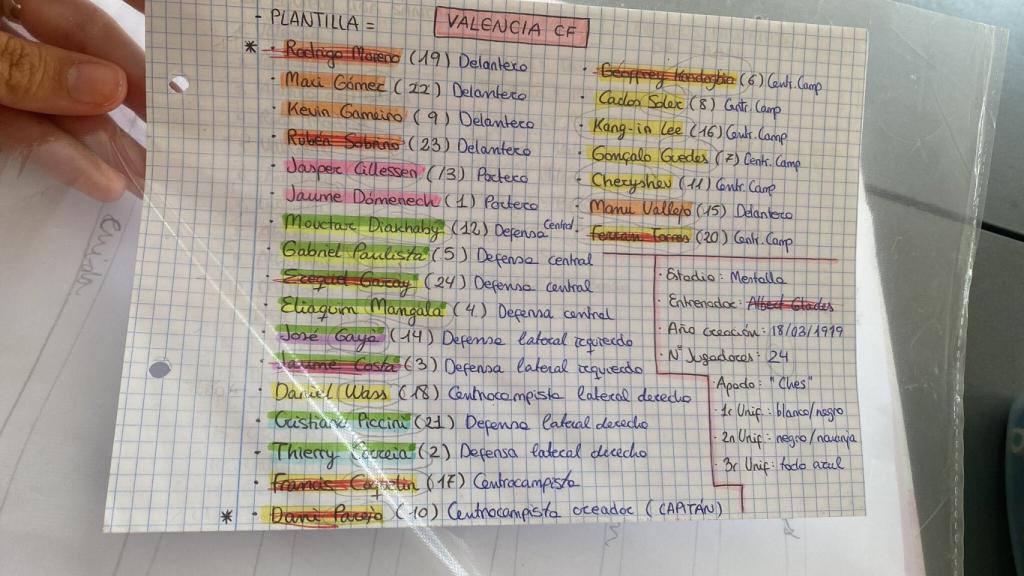 - PLANTILLA = VALENCIA CF
* - Rodrigo Moreno (19) Delantero
- Maxi Gómez (22) Delantero
- Kevin Gameiro (9) Delantero
- Rubén Sobrino (23) Delantero
- Jasper Cillessen (13) Portero
- Jaume Domenech (1) Portero
- Mouctar Diakhaby (12) Defensa Central
- Gabriel Paulista (5) Defensa central
- Ezequiel Garay (24) Defensa central
- Eliaquim Mangala (4) Defensa central
- José Gayà (14) Defensa lateral izquierdo
- Jaume Costa (3) Defensa lateral izquierdo
- Daniel Wass (18) Centrocampista lateral derecho
- Cristiano Piccini (21) Defensa lateral derecho
- Thierry Correia (2) Defensa lateral derecho
- Francis Coquelin (17) Centrocampista
* - Dani Parejo (10) Centrocampista creador (CAPITÁN)
- Geoffrey Kondogbia (6) Centr. Camp
- Carlos Soler (8) Centr. Camp
- Kang-in Lee (16) Centr. Camp
- Gonçalo Guedes (7) Centr. Camp
- Cheryshev (11) Centr. Camp
- Manu Vallejo (15) Delantero
- Ferran Torres (20) Centr. Camp
· Estadio: Mestalla
· Entrenador: Albert Celades
· Año creación: 18/03/1919
· Nº Jugadores: 24
· Apodo: "Ches"
· 1r Unif.: blanco/negro
· 2n Unif: negro/naranja
· 3r Unif: todo azul